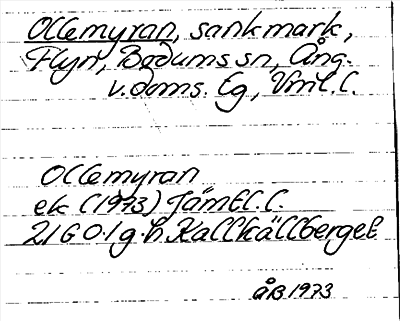 Ollemyran, sankmark,
Flyn, Bodums sn, Ång.
v.doms. Eg, Vml. l.
Ollemyran
ek (1973) Jämtl. l.
21G 0-1 g-h Kallkällberget
åB 1973